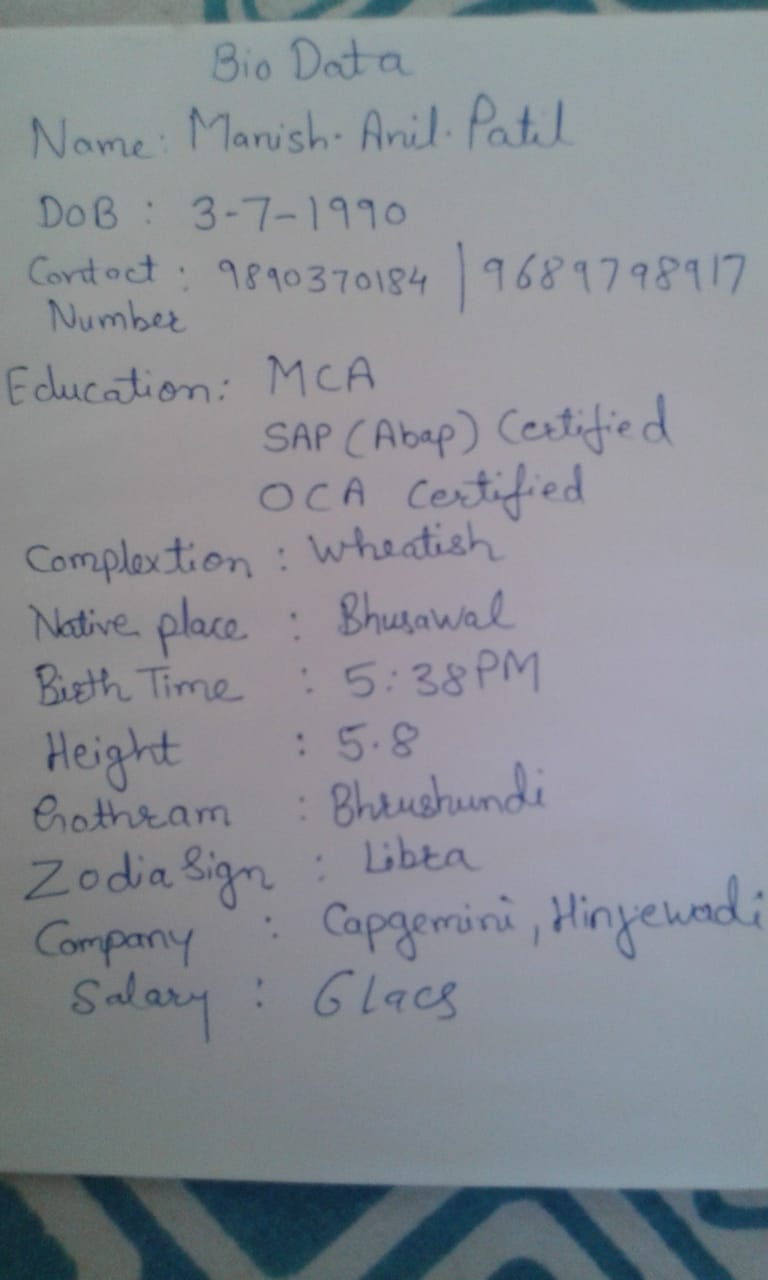 Bio Data
Name: Manish. Anil. Patil
DoB : 3-7-1990
Contact : 9890370184 | 9689798917
Number
Education: MCA
SAP (Abap) Certified
OCA Certified
Complextion : Wheatish
Native place : Bhusawal
Birth Time : 5:38PM
Height : 5.8
Gothram : Bhrushundi
Zodia Sign : Libra
Company : Capgemini, Hinjewadi
Salary : 6 lacs